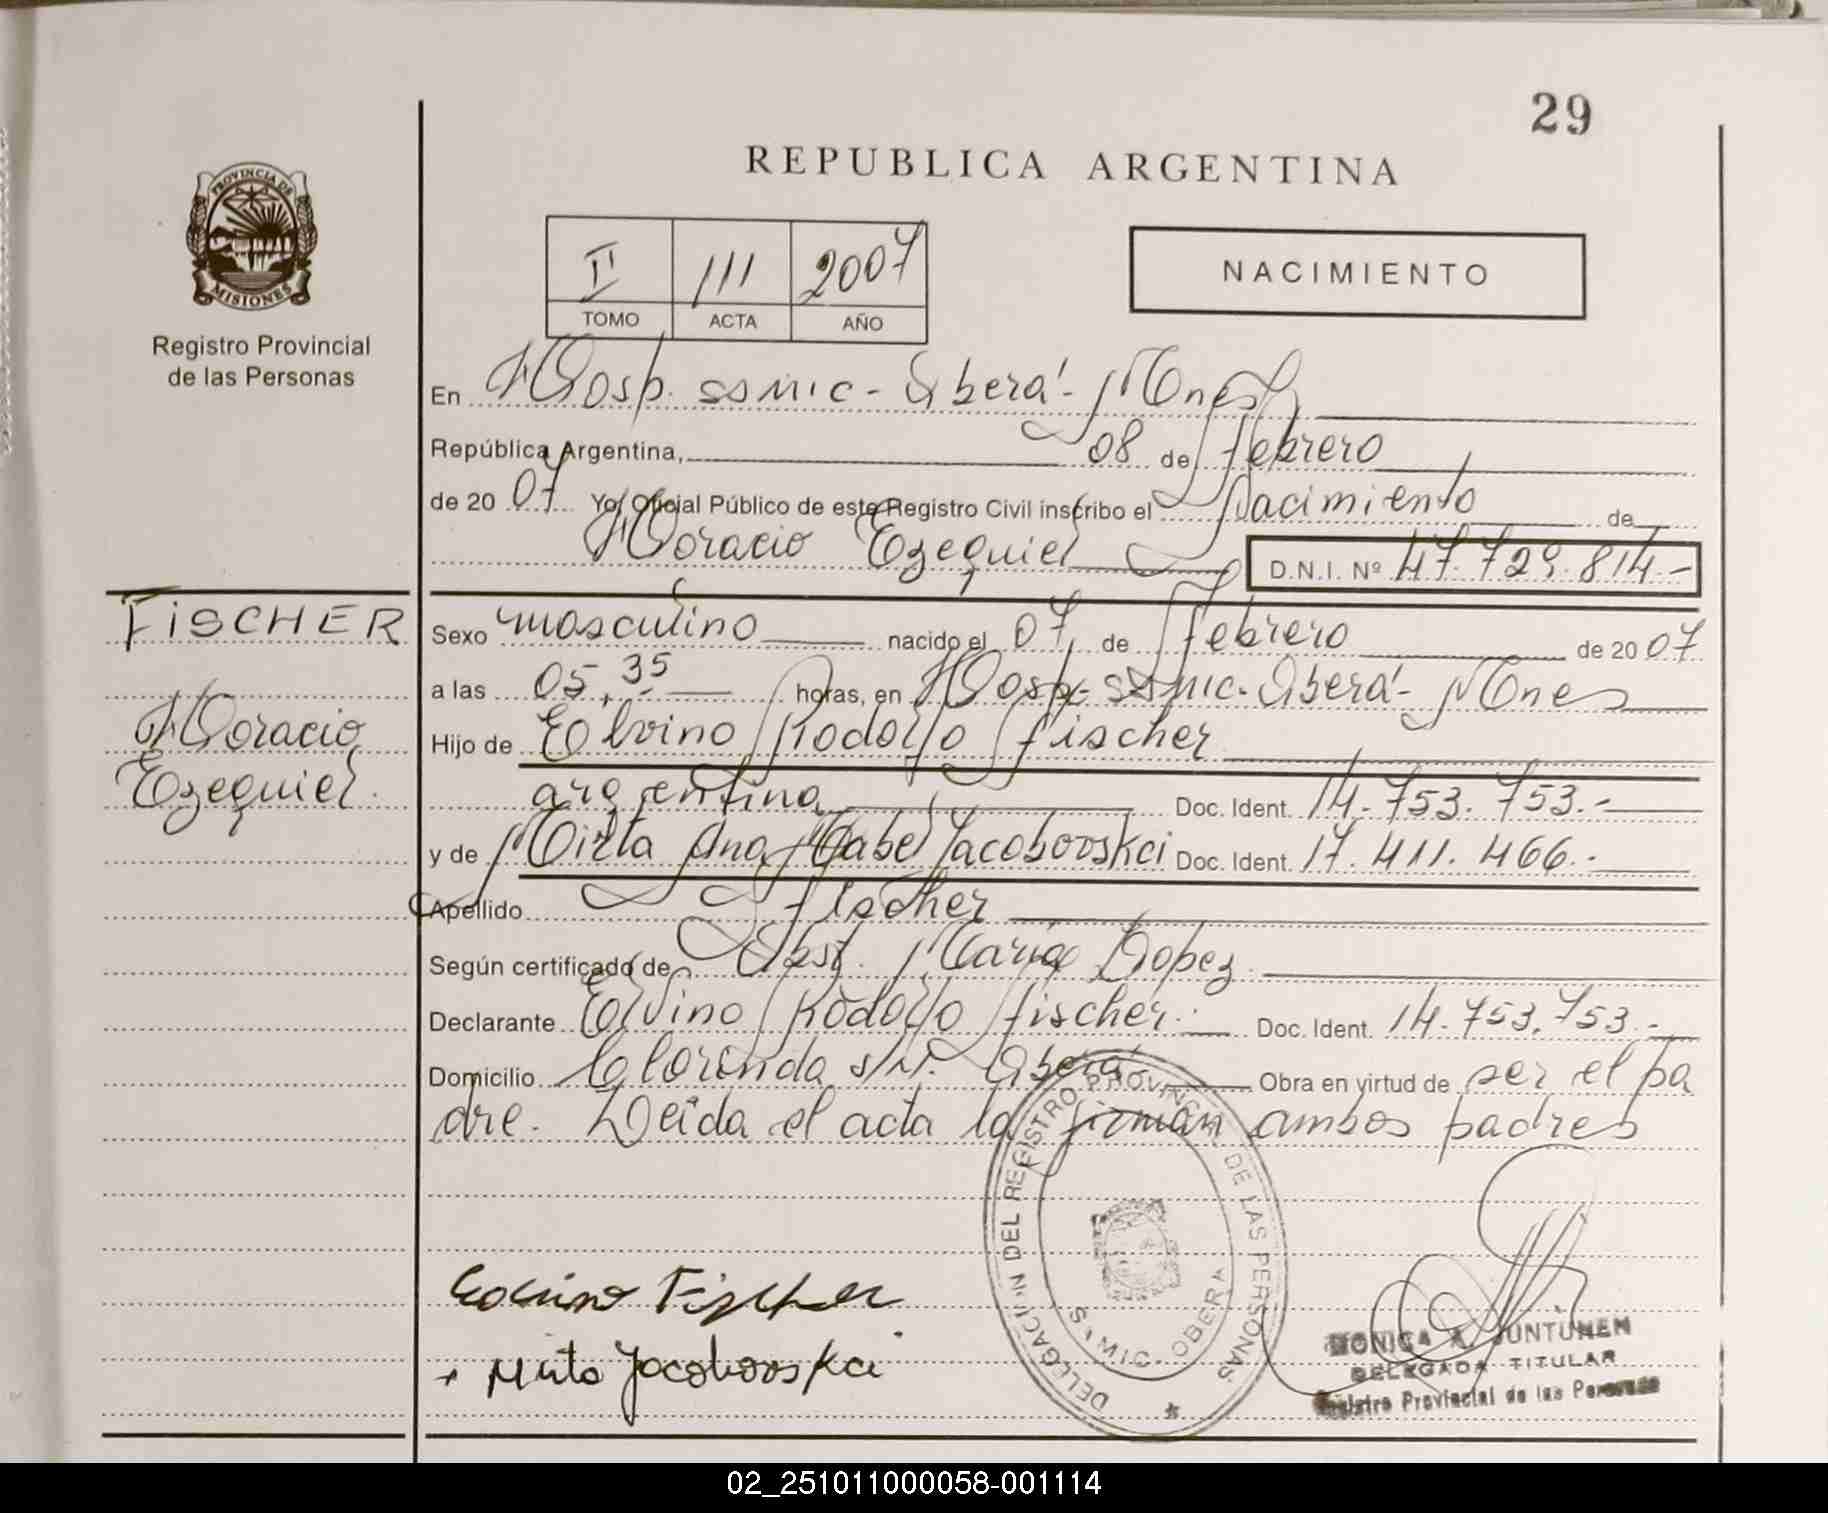 29
REPUBLICA ARGENTINA
PROVINCIA DE
MISIONES
Registro Provincial
de las Personas
II 111 2007
TOMO ACTA AÑO
NACIMIENTO
En Hosp. SSMIC - Oberá - Mnes
República Argentina, 08 de febrero
de 20 07 Yo, Oficial Público de este Registro Civil inscribo el Nacimiento de
Horacio Ezequiel D.N.I. Nº 47.729.814.-
FISCHER
Horacio
Ezequiel.
Sexo masculino nacido el 07 de febrero de 20 07
a las 05,35 horas, en Hosp. SSMIC - Oberá - Mnes
Hijo de Elvino Rodolfo Fischer
argentina Doc. Ident. 14.753.753.-
y de Mirta Ana Mabel Jacobovskci Doc. Ident. 17.411.466.-
Apellido Fischer
Según certificado de Obst. Maria Lopez
Declarante Elvino Rodolfo Fischer Doc. Ident. 14.753.753.-
Domicilio Clorinda s/N. Oberá Obra en virtud de ser el pa
dre. Leída el acta la firman ambos padres
DELEGACION DEL REGISTRO PROVINCIAL DE LAS PERSONAS
SAMIC - OBERA
Fischer
Mirta Jacobovskci
MONICA A. JUNTUNEN
DELEGADA TITULAR
Registro Provincial de las Personas
02_251011000058-001114